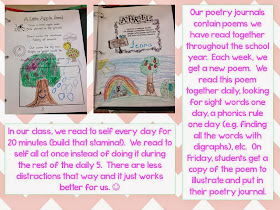 A Little Apple Seed
APRIL
Jenna
Our poetry journals
contain poems we
have read together
throughout the school
year. Each week, we
get a new poem. We
read this poem
together daily, looking
for sight words one
day, a phonics rule
one day (e.g. finding
all the words with
digraphs), etc. On
Friday, students get a
copy of the poem to
illustrate and put in
their poetry journal.
In our class, we read to self every day for
20 minutes (build that stamina!). We read to
self all at once instead of doing it during
the rest of the daily 5. There are less
distractions that way and it just works
better for us. ☺